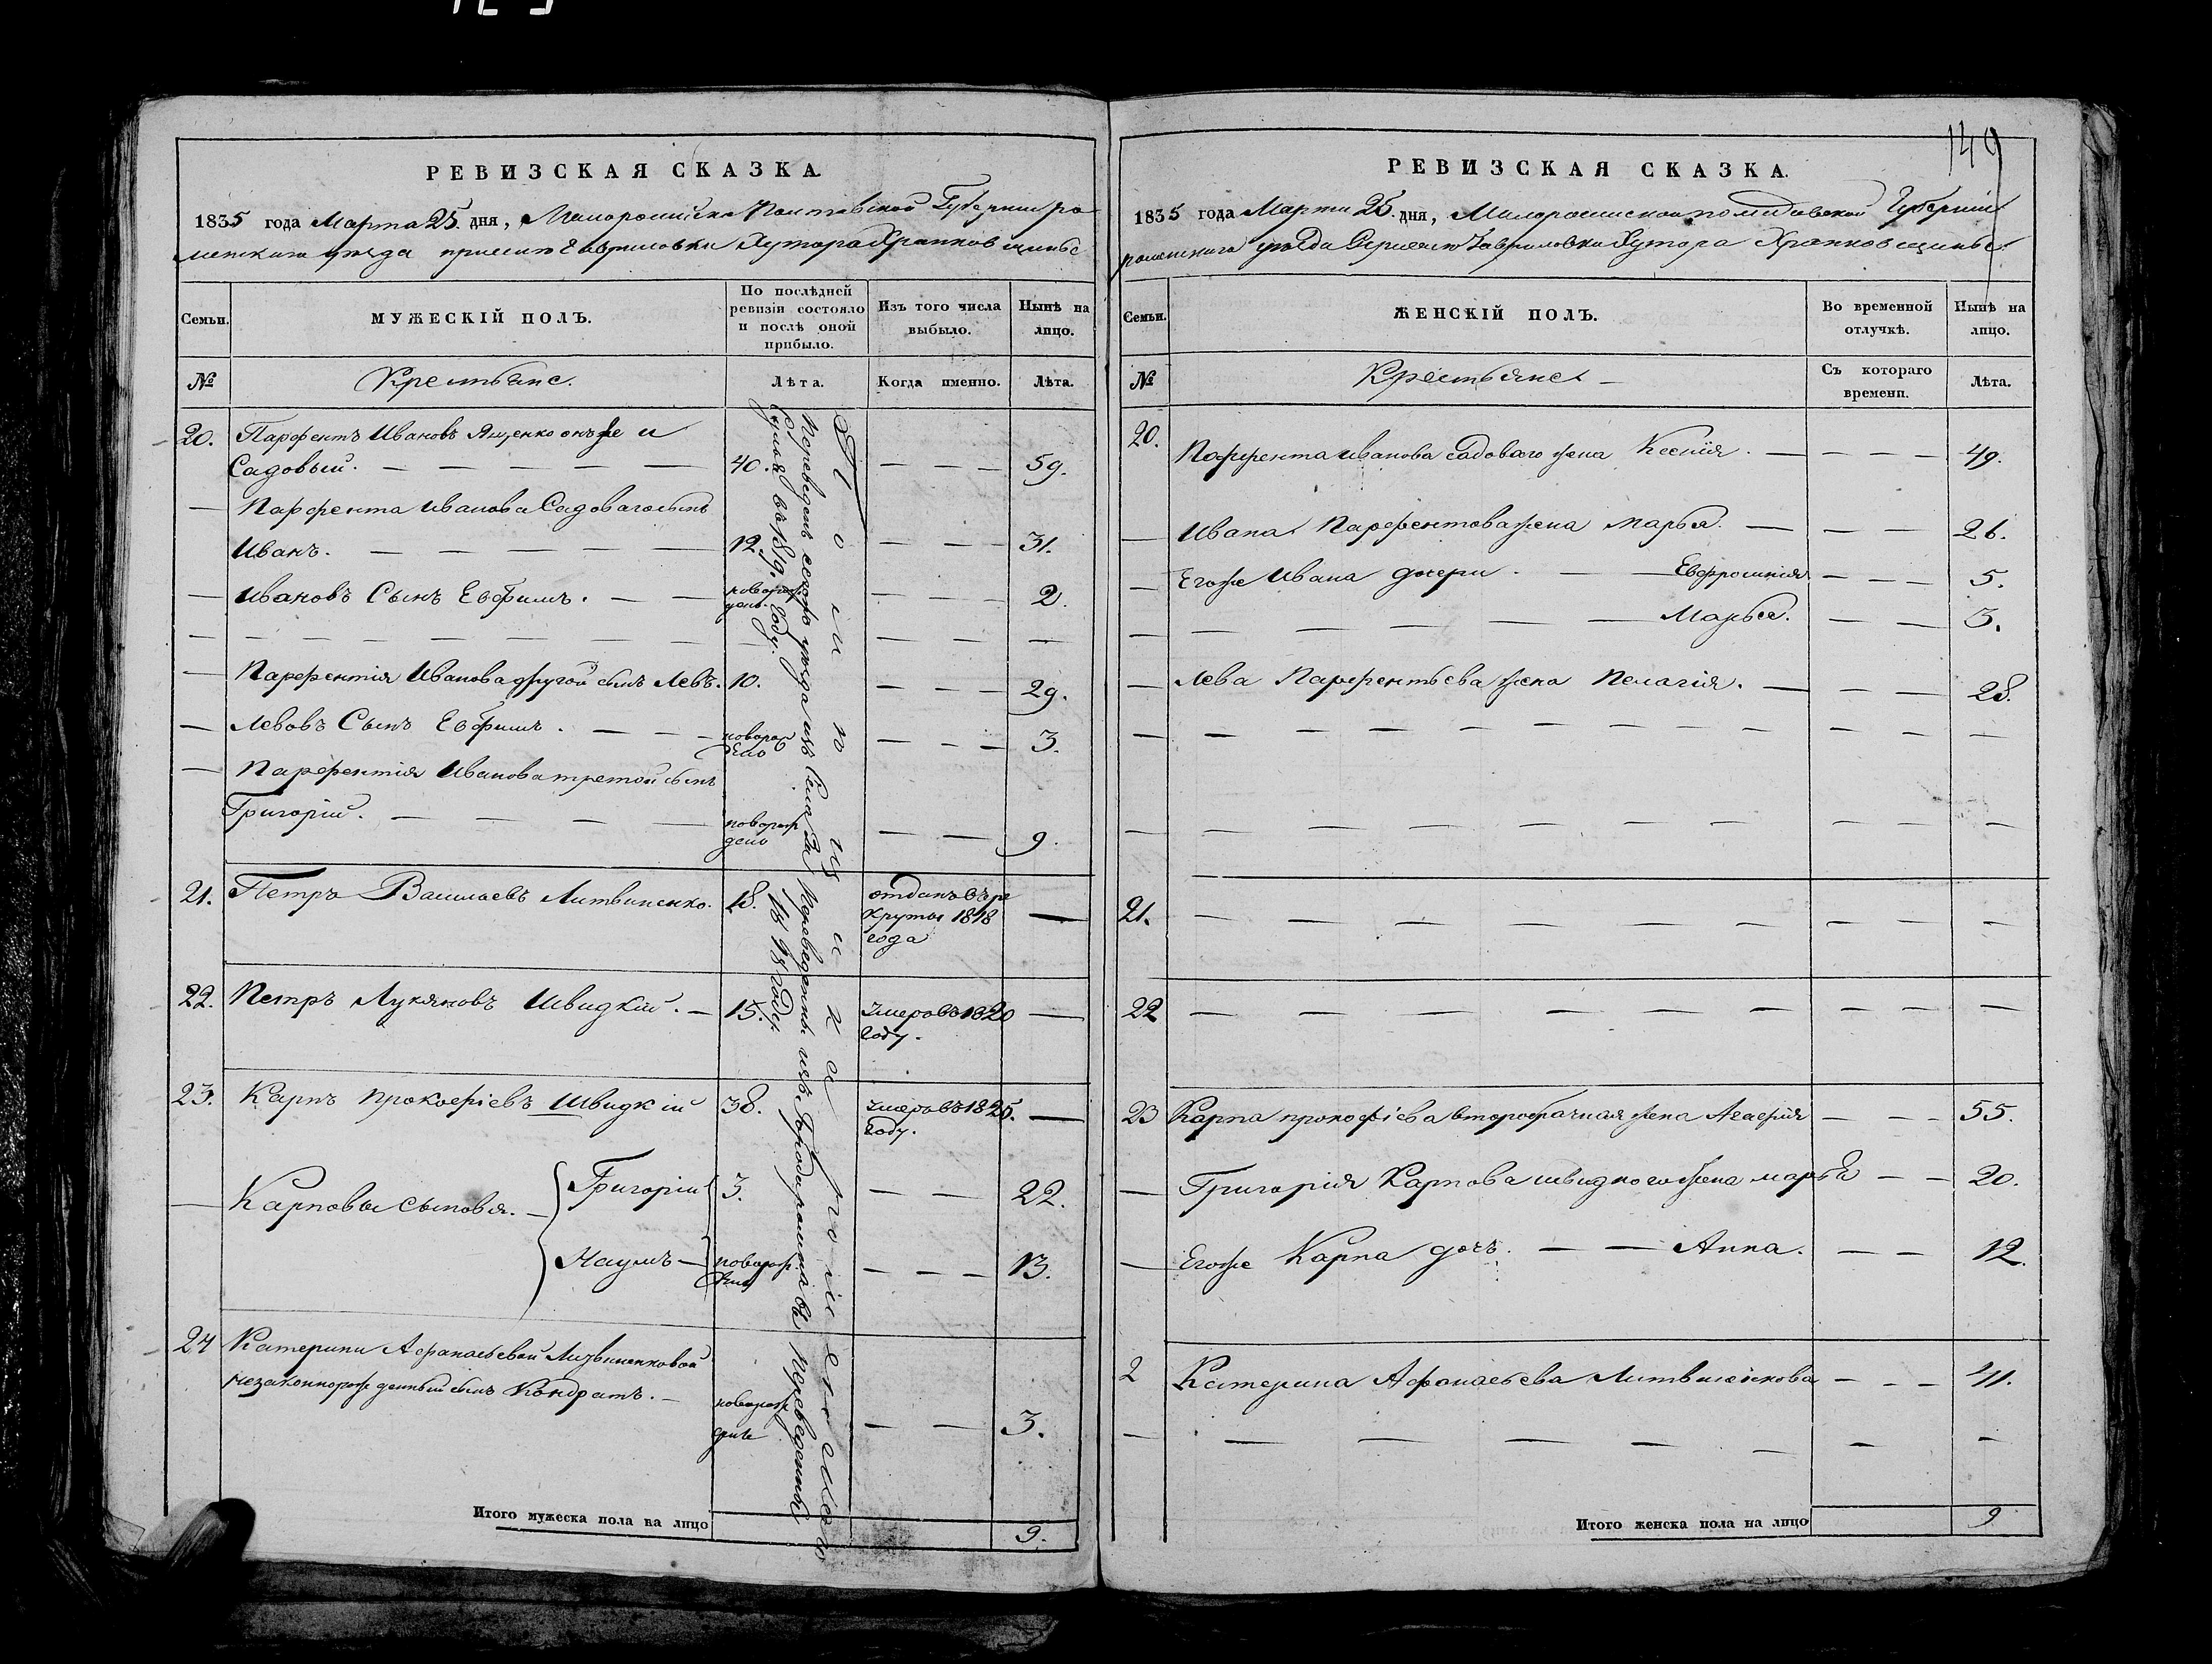 РЕВИЗСКАЯ СКАЗКА.
1835 года Марта 25. дня, Малоросийско Полтавской Губернии ро
менского уезда при селе Гавриловки Хутора Храпковщины
Семьи.
МУЖЕСКІЙ ПОЛЪ.
По послѣдней ревизіи состояло и послѣ оной прибыло.
Изъ того числа выбыло.
Нынѣ на лицо.
№
Крестьяне.
Лѣта.
Когда именно.
Лѣта.
20. Парфентъ Ивановъ Ященко онъже и
Садовый. — — — — — 40. — — — 59.
— Парфента Иванова Садоваго сынъ
Иванъ. — — — — — 12. — — — 31.
— Ивановъ Сынъ Евфимъ. — — новорож
денъ. — — — 2.
— — — — — — — — — — — —
— Парфентія Иванова другой сынъ Левъ. 10. — — — 29.
— Левовъ Сынъ Евфимъ. — — — новорож
дено — — — 3.
— Парфентія Иванова третой сынъ
Григорій. — — — — новорож
дено — — 9.
21. Петръ Васильевъ Литвиненко. 18. отданъ въ ре
круты 1818
года —
22. Петръ Лукяновъ Швидкій. — 15. Умеръ въ 1820
Году. —
23. Карпъ Прокофіевъ Швидкій 38. Умеръ въ 1825.
Году. —
— Карповы сыновья. — Григорій 3. — — 22.
Наумъ — новорож — — — 13.
24 Катерини Афанасьевой Литвиненковой
незаконнорожденный сынъ Кондратъ. — новорож
— — 3.
Переведенъ сегожъ уезда изъ Села
въ 1819. Году.
Переведенны изъ
Переведенный
Итого мужеска пола на лицо 9.
149
РЕВИЗСКАЯ СКАЗКА.
1835 года Марта 25. дня, Малоросийской полтавской Губерніи
роменского уезда При селе Гавриловки Хутора Храпковщины
Семьи.
ЖЕНСКІЙ ПОЛЪ.
Во временной отлучкѣ.
Нынѣ на лицо.
№
Крестьяне —
Съ котораго времени.
Лѣта.
20. Парфента иванова садоваго жена Ксенія. — — — — 49.
— Ивана Парфентова жена марья. — — — 26.
— Егоже Ивана дочери. — — Евфросинія — — — 5.
— — — — — — Марья. — — 3.
— Лева Парфентьева жена Пелагія. — — — 28.
— — — — — — — — — — — —
— — — — — — — — — — — —
21. — — — — — — — — — —
22 — — — — — — — — — —
23 Карпа прокофіева второбрачная жена Агафія — — — 55.
— Григорія Карпова швидкого жена марья — — 20.
— Егоже Карпа дочъ. — — Анна. — — 12.
2 Катерина Афанасьева Литвиненкова — — — 41.
— — — — — — — —
Итого женска пола на лицо 9